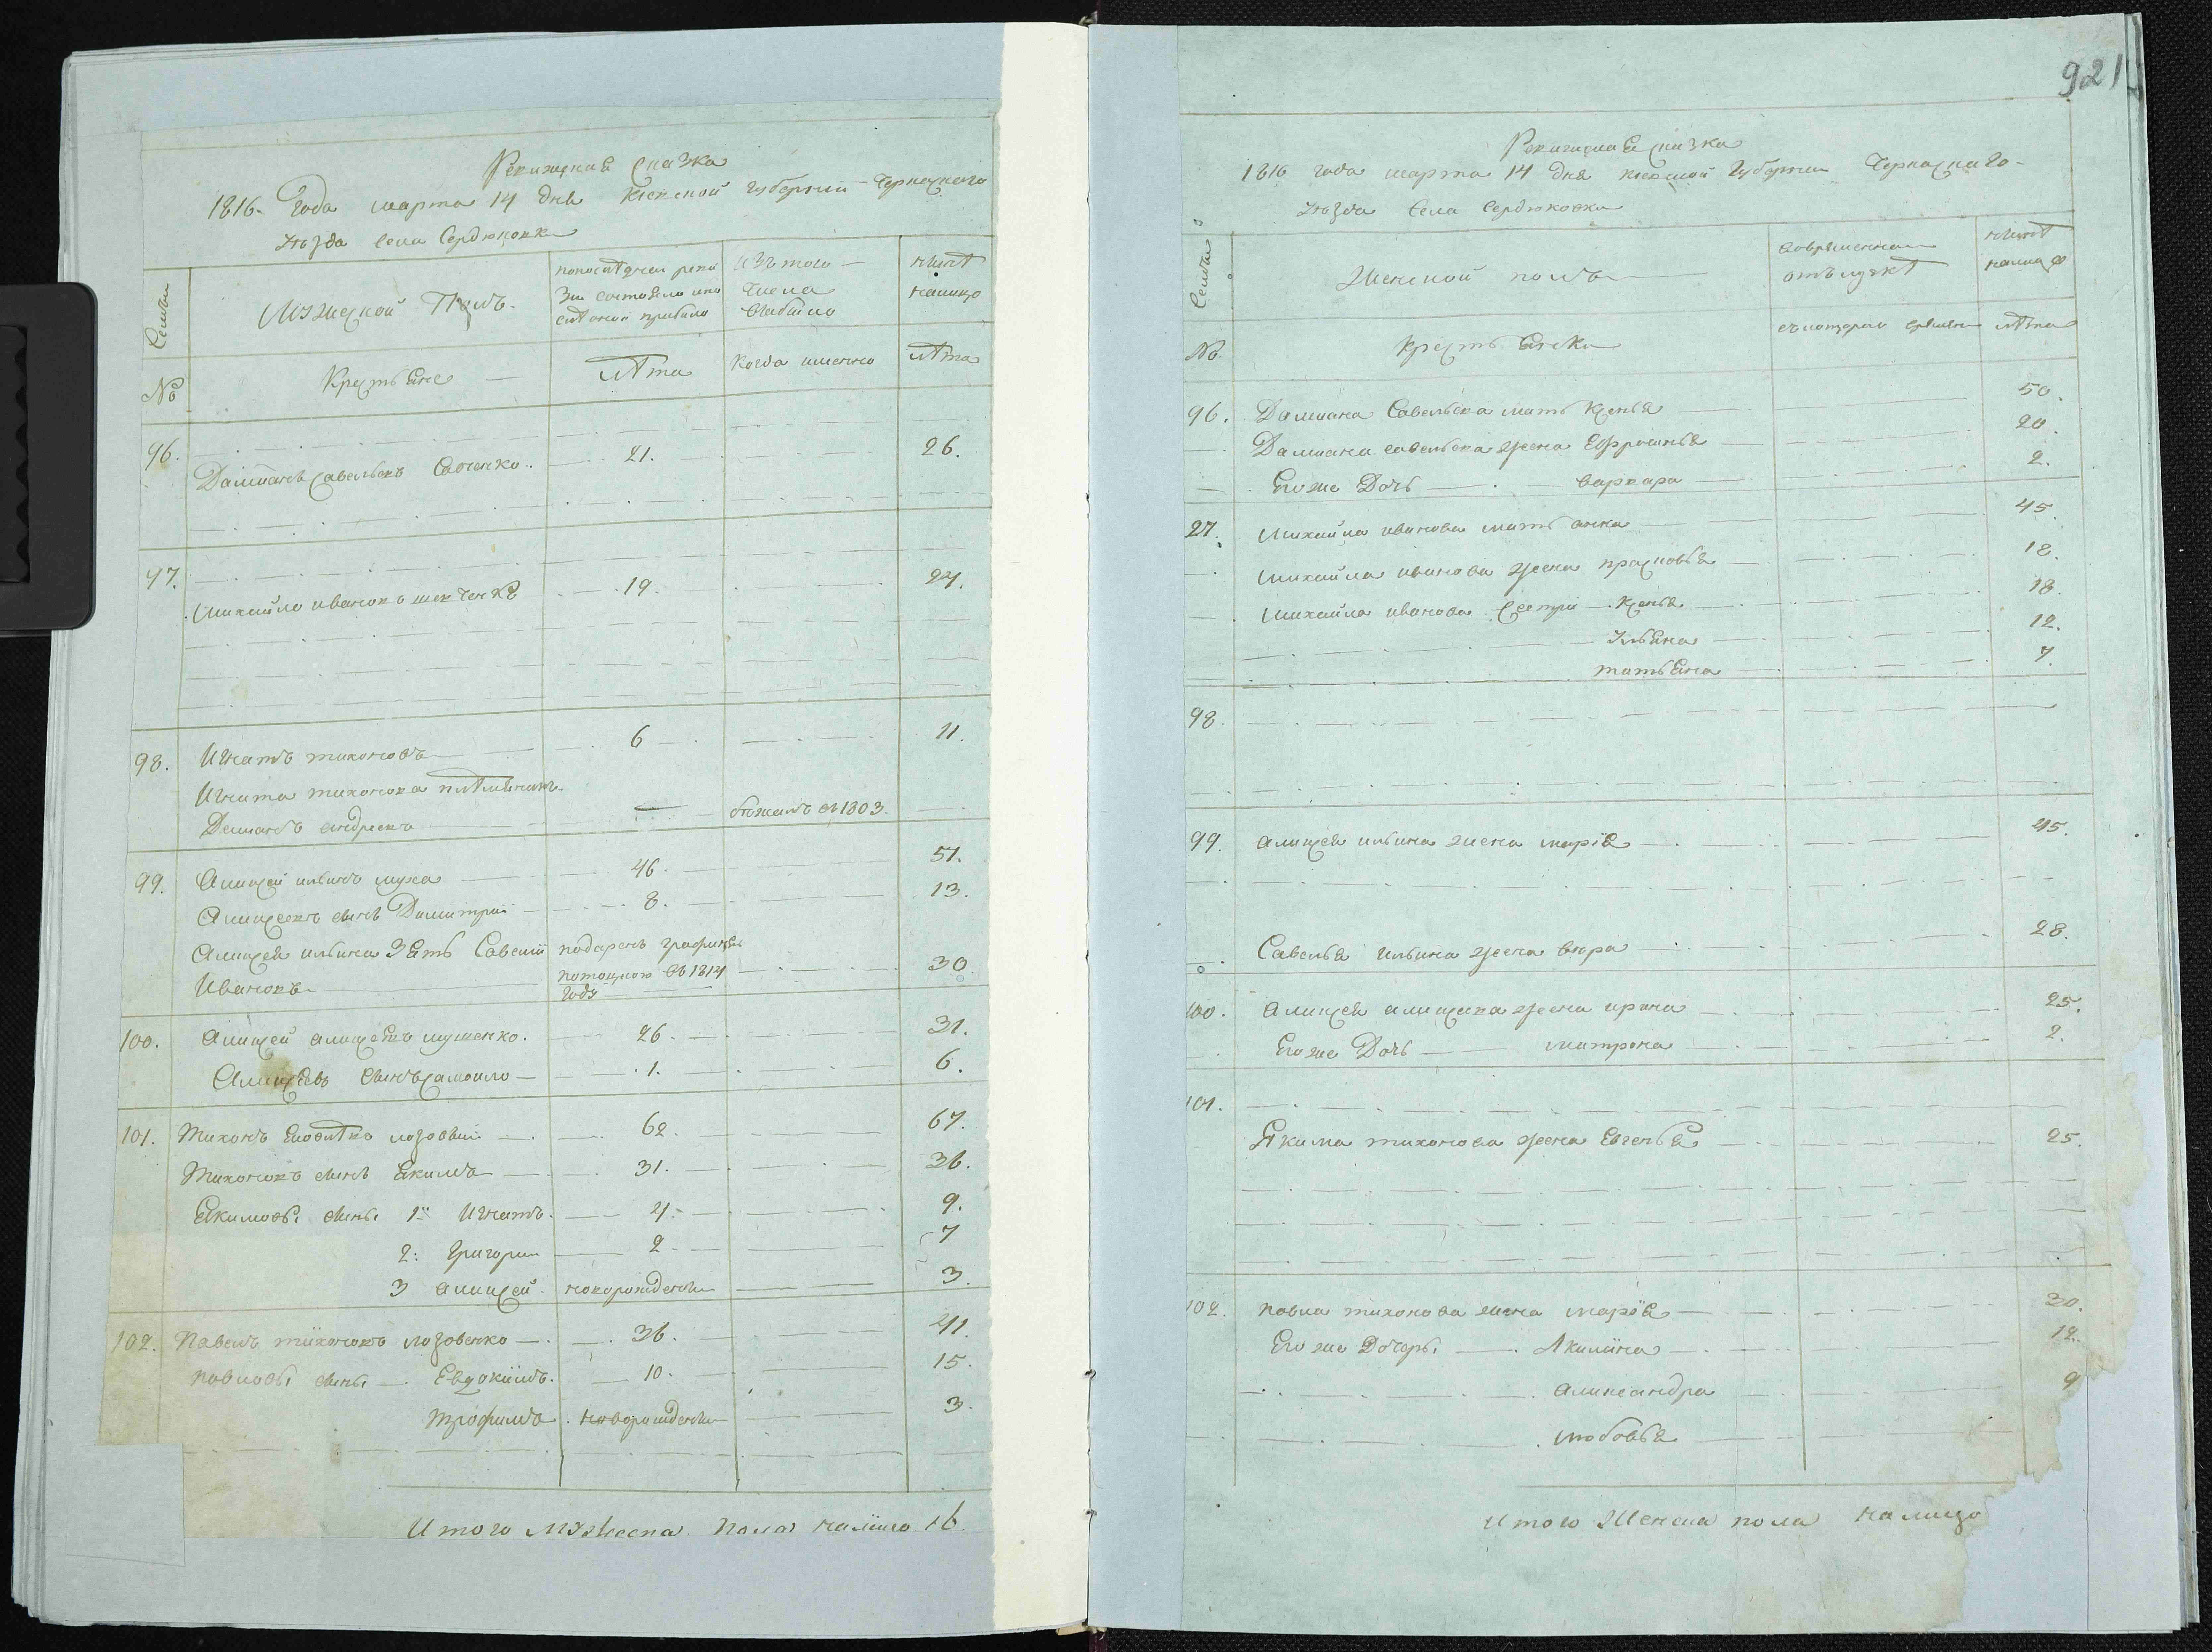 Ревизская Сказка
1816. Года марта 14 дня Киевской губернии Черкаскаго
уѣзда села Сердюковки
Семьи
Мужеской Полъ.
по последней реви
зіи состояло и по
слѣ оной прибыло
Изъ того
числа
выбыло
нынѣ
налицо
№
Крестьяне
Лѣта
Когда именно
лѣта
96. Дамианъ Савельевъ Савченко. 21. 26.
97. Михайло ивановъ шевченко 19. 24.
98. Игнатъ тихоновъ 6 11.
Игната тихонова племянникъ
Демьянъ андреевъ бежалъ въ 1803.
99. Аликсей ильинъ муха 46. 51.
Аликсеевъ сынъ Димитрий 8. 13.
Аликсея ильина Зять Савелий подаренъ графинею
Ивановъ потоцкою въ 1814 30
году
100. Аликсей аликсеевъ мушенко. 26. 31.
Аликсеевъ сынъ самоило 1. 6.
101. Тихонъ лозовый 62. 67.
Тихоновъ сынъ Якимъ 31. 36.
Якимовы сыны 1й Игнатъ. 4. 9.
2: Григорий 2. 7
3 аликсей. новорожденъ 3.
102. Павелъ тихоновъ лозовенко 36. 41.
павловы сыны Евдокимъ. 10. 15.
трофимъ новорожденъ 3.
Итого Мужеска пола налицо 16.
921
Ревизская сказка
1816 года марта 14 дня киевской Губернии Черкаскаго
уѣзда села Сердюковки
Семьи
Женской полъ
во временной
отълучкѣ
нынѣ
налицо
№.
Крестьянки
съ котораго времени
лѣта
96. Дамиана Савельева мать Ксенья 50.
Дамиана савельева жена Ефросинья 20.
Его же Дочь варвара 2.
27. Михайла иванова мать анна 45
Михайла иванова жена прасковья 18.
Михайла иванова сестры Ксенья 18.
Ульяна 12.
татьяна 7.
98.
99. аликсея ильина жена марія 45.
Савелья ильина жена вера 28.
100. Аликсея аликсеева жена ирина 25.
Его же Дочь матрона 2.
101.
Якима тихонова жена Евгенья 25.
102. павла тихонова жена марія 30.
Его же Дочери Акилина 12.
александра 9
любовья
Итого Женска пола налицо